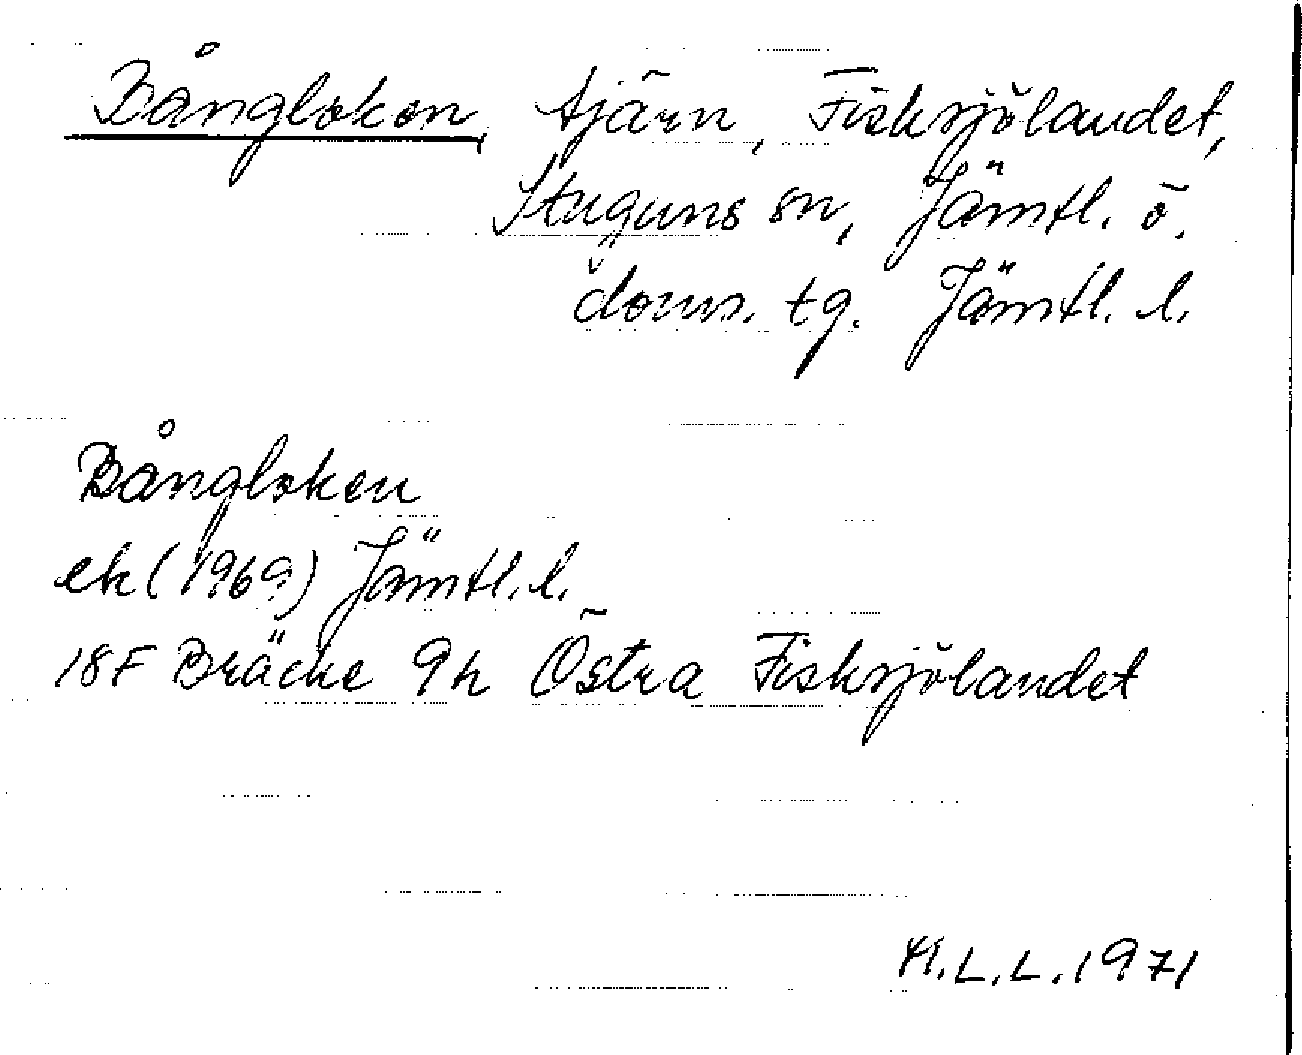 Bångloken, tjärn, Fisksjölandet,
Stuguns sn, Jämtl. ö.
doms. tg. Jämtl. l.
Bångloken
ek (1969) Jämtl. l.
18F Bräcke 9h Östra Fisksjölandet
M.L.L. 1971